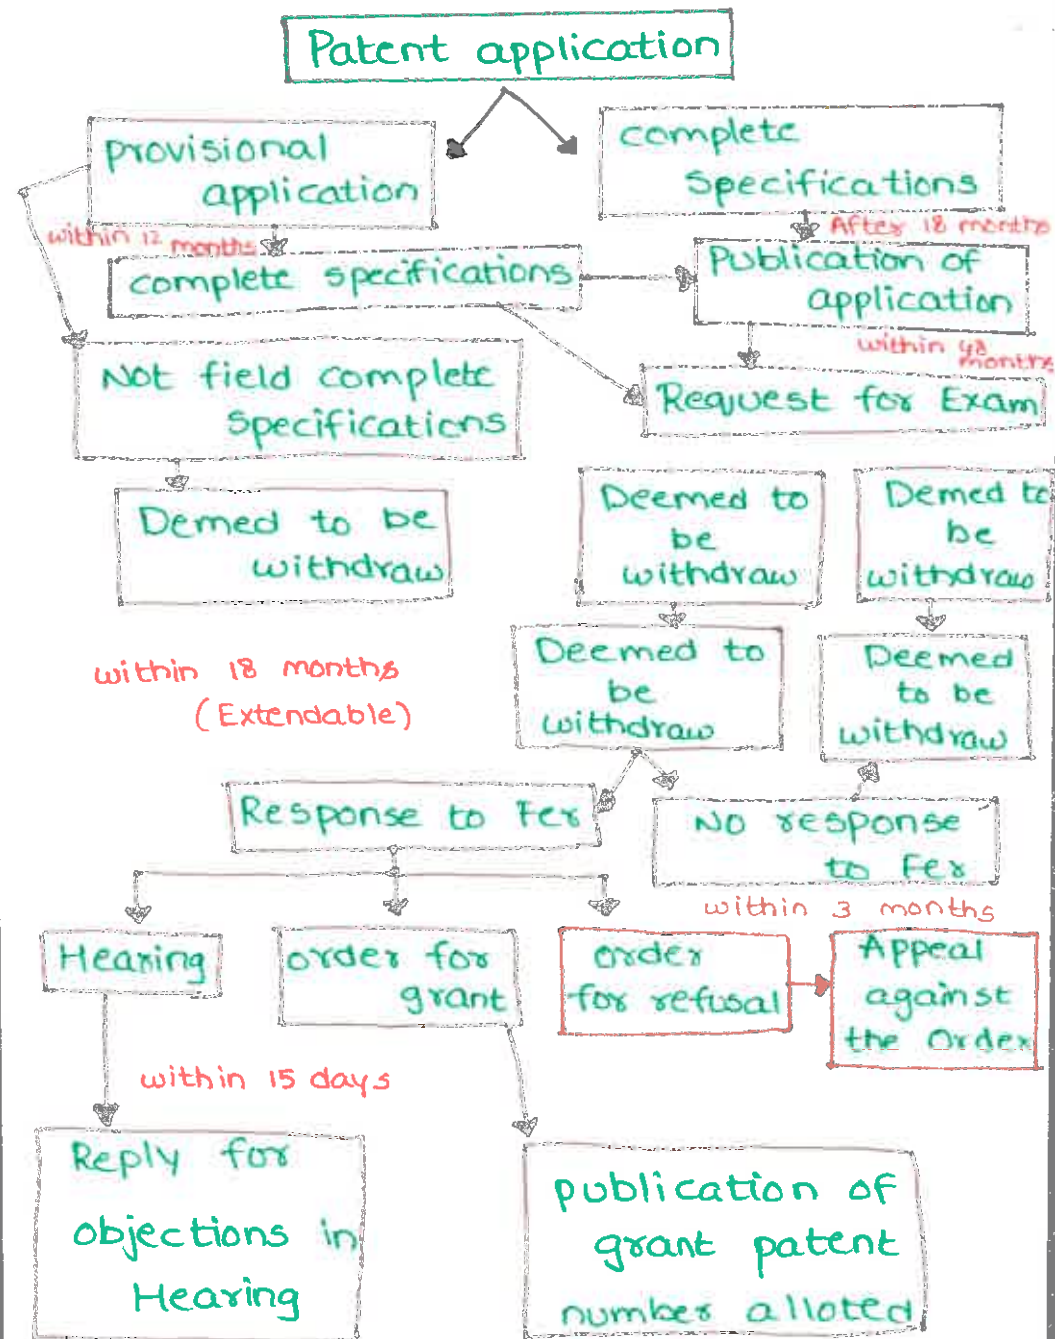 Patent application
provisional
application
complete
specifications
within 12 months
After 18 months
complete specifications
Publication of
application
within 48
months
Not field complete
specifications
Request for Exam
Demed to be
withdraw
Deemed to
be
withdraw
Demed to
be
withdraw
within 18 months
(Extendable)
Deemed to
be
withdraw
Deemed
to be
withdraw
Response to Fer
No response
to Fer
within 3 months
Hearing
order for
grant
order
for refusal
Appeal
against
the Order
within 15 days
Reply for
objections in
Hearing
publication of
grant patent
number alloted